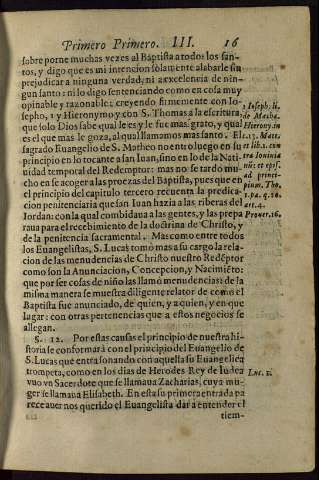 Primero Primero. III. 16
sobre porne muchas vezes al Baptista a todos los san-
tos, y digo que es mi intencion solamente alabarle sin
prejudicar a ninguna verdad, ni a excelencia de nin-
gun santo: ni lo digo sentenciando como en cosa muy
opinable y razonable: creyendo firmemente con Io-
sepho, 1 y Hieronymo y con S. Thomas a la escritura,
que solo Dios sabe qual le es y le fue mas grato, y qual
es el que mas le goza, al qual llamamos mas santo. El
sagrado Euangelio de S. Matheo no entro luego en su
principio en lo tocante a san Iuan, sino en lo de la Nati-
uidad temporal del Redemptor: mas no se tardo mu-
cho en se acoger a las proezas del Baptista, pues que en
el principio del capitulo tercero recuenta la predica-
cion penitenciaria que san Iuan hazia a las riberas del
Iordan: con la qual combidaua a las gentes, y las prepa
raua para el recebimiento de la doctrina de Christo, y
de la penitencia sacramental. Mas como entre todos
los Euangelistas, S. Lucas tomo mas a su cargo la rela-
cion de las menudencias de Christo nuestro Redẽptor
como son la Anunciacion, Concepcion, y Nacimiẽto:
que por ser cosas de niño las llamo menudencias: de la
misma manera se muestra diligente relator de como el
Baptista fue anunciado, de quien, y a quien, y en que
lugar: con otras pertenencias que a estos negocios se
allegan.
§. 12. Por estas causas el principio de nuestra hi-
storia se conformarà con el principio del Euangelio de
S. Lucas que entra sonando con aquella su Euangelica
trompeta, como en los dias de Herodes Rey de Iudea
vuo vn Sacerdote que se llamaua Zacharias, cuya mu-
ger se llamaua Elisabeth. En esta su primera entrada pa
rece auer nos querido el Euangelista dar a entender el
tiem-
1 Ioseph. li.
de Macha.
Hieronym. in
17. Matt.
et lib. 2. con
tra Iouinia
ad princi-
pium. Tho.
1. pa. q. 20.
art. 4.
Prouer. 16.
Luc. 1.